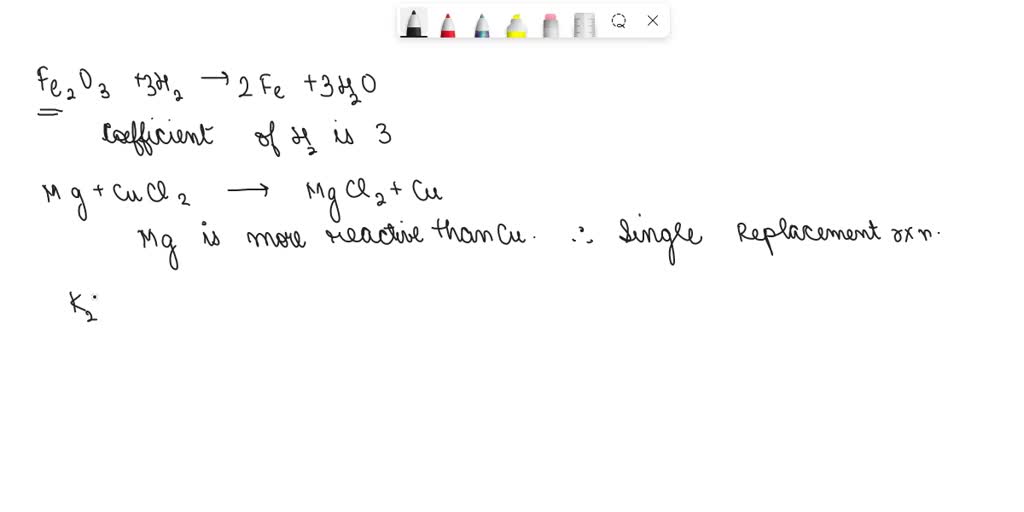 Fe₂O₃ +3H₂ → 2Fe +3H₂O
Coefficient of H₂ is 3
Mg + CuCl₂ → MgCl₂ + Cu
Mg is more reactive than Cu. ∴ Single Replacement rxn.
K₂